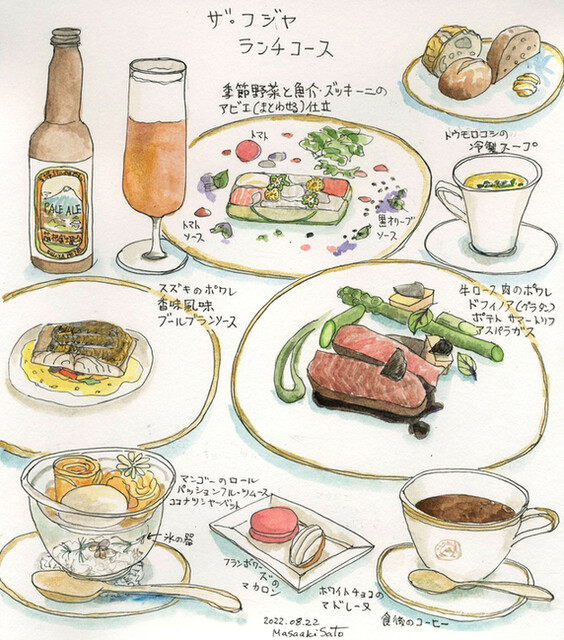 ザ・フジヤ
ランチコース
季節野菜と魚介・ズッキーニの
アビエ(まとわせる)仕立
トマト
トマト
ソース
黒オリーブ
ソース
トウモロコシの
冷製スープ
PALE ALE
スズキのポワレ
香味風味
ブールブランソース
牛ロース肉のポワレ
ドフィノア(グラタン)
ポテト サマートリフ
アスパラガス
マンゴーのロール
パッションフルーツムース
ココナツシャーベット
氷の器
フランボワー
ズの
マカロン
ホワイトチョコの
マドレーヌ
食後のコーヒー
2022.08.22
Masaaki Sato